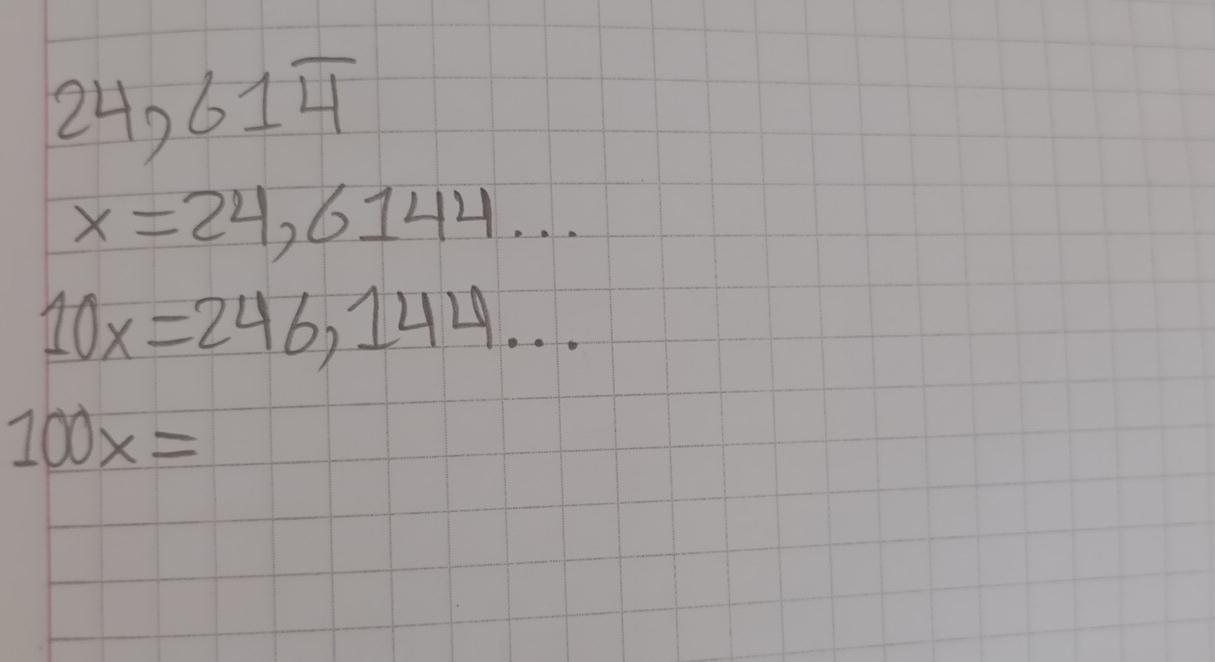 24,614̅
x=24,6144...
10x=246,144...
100x=